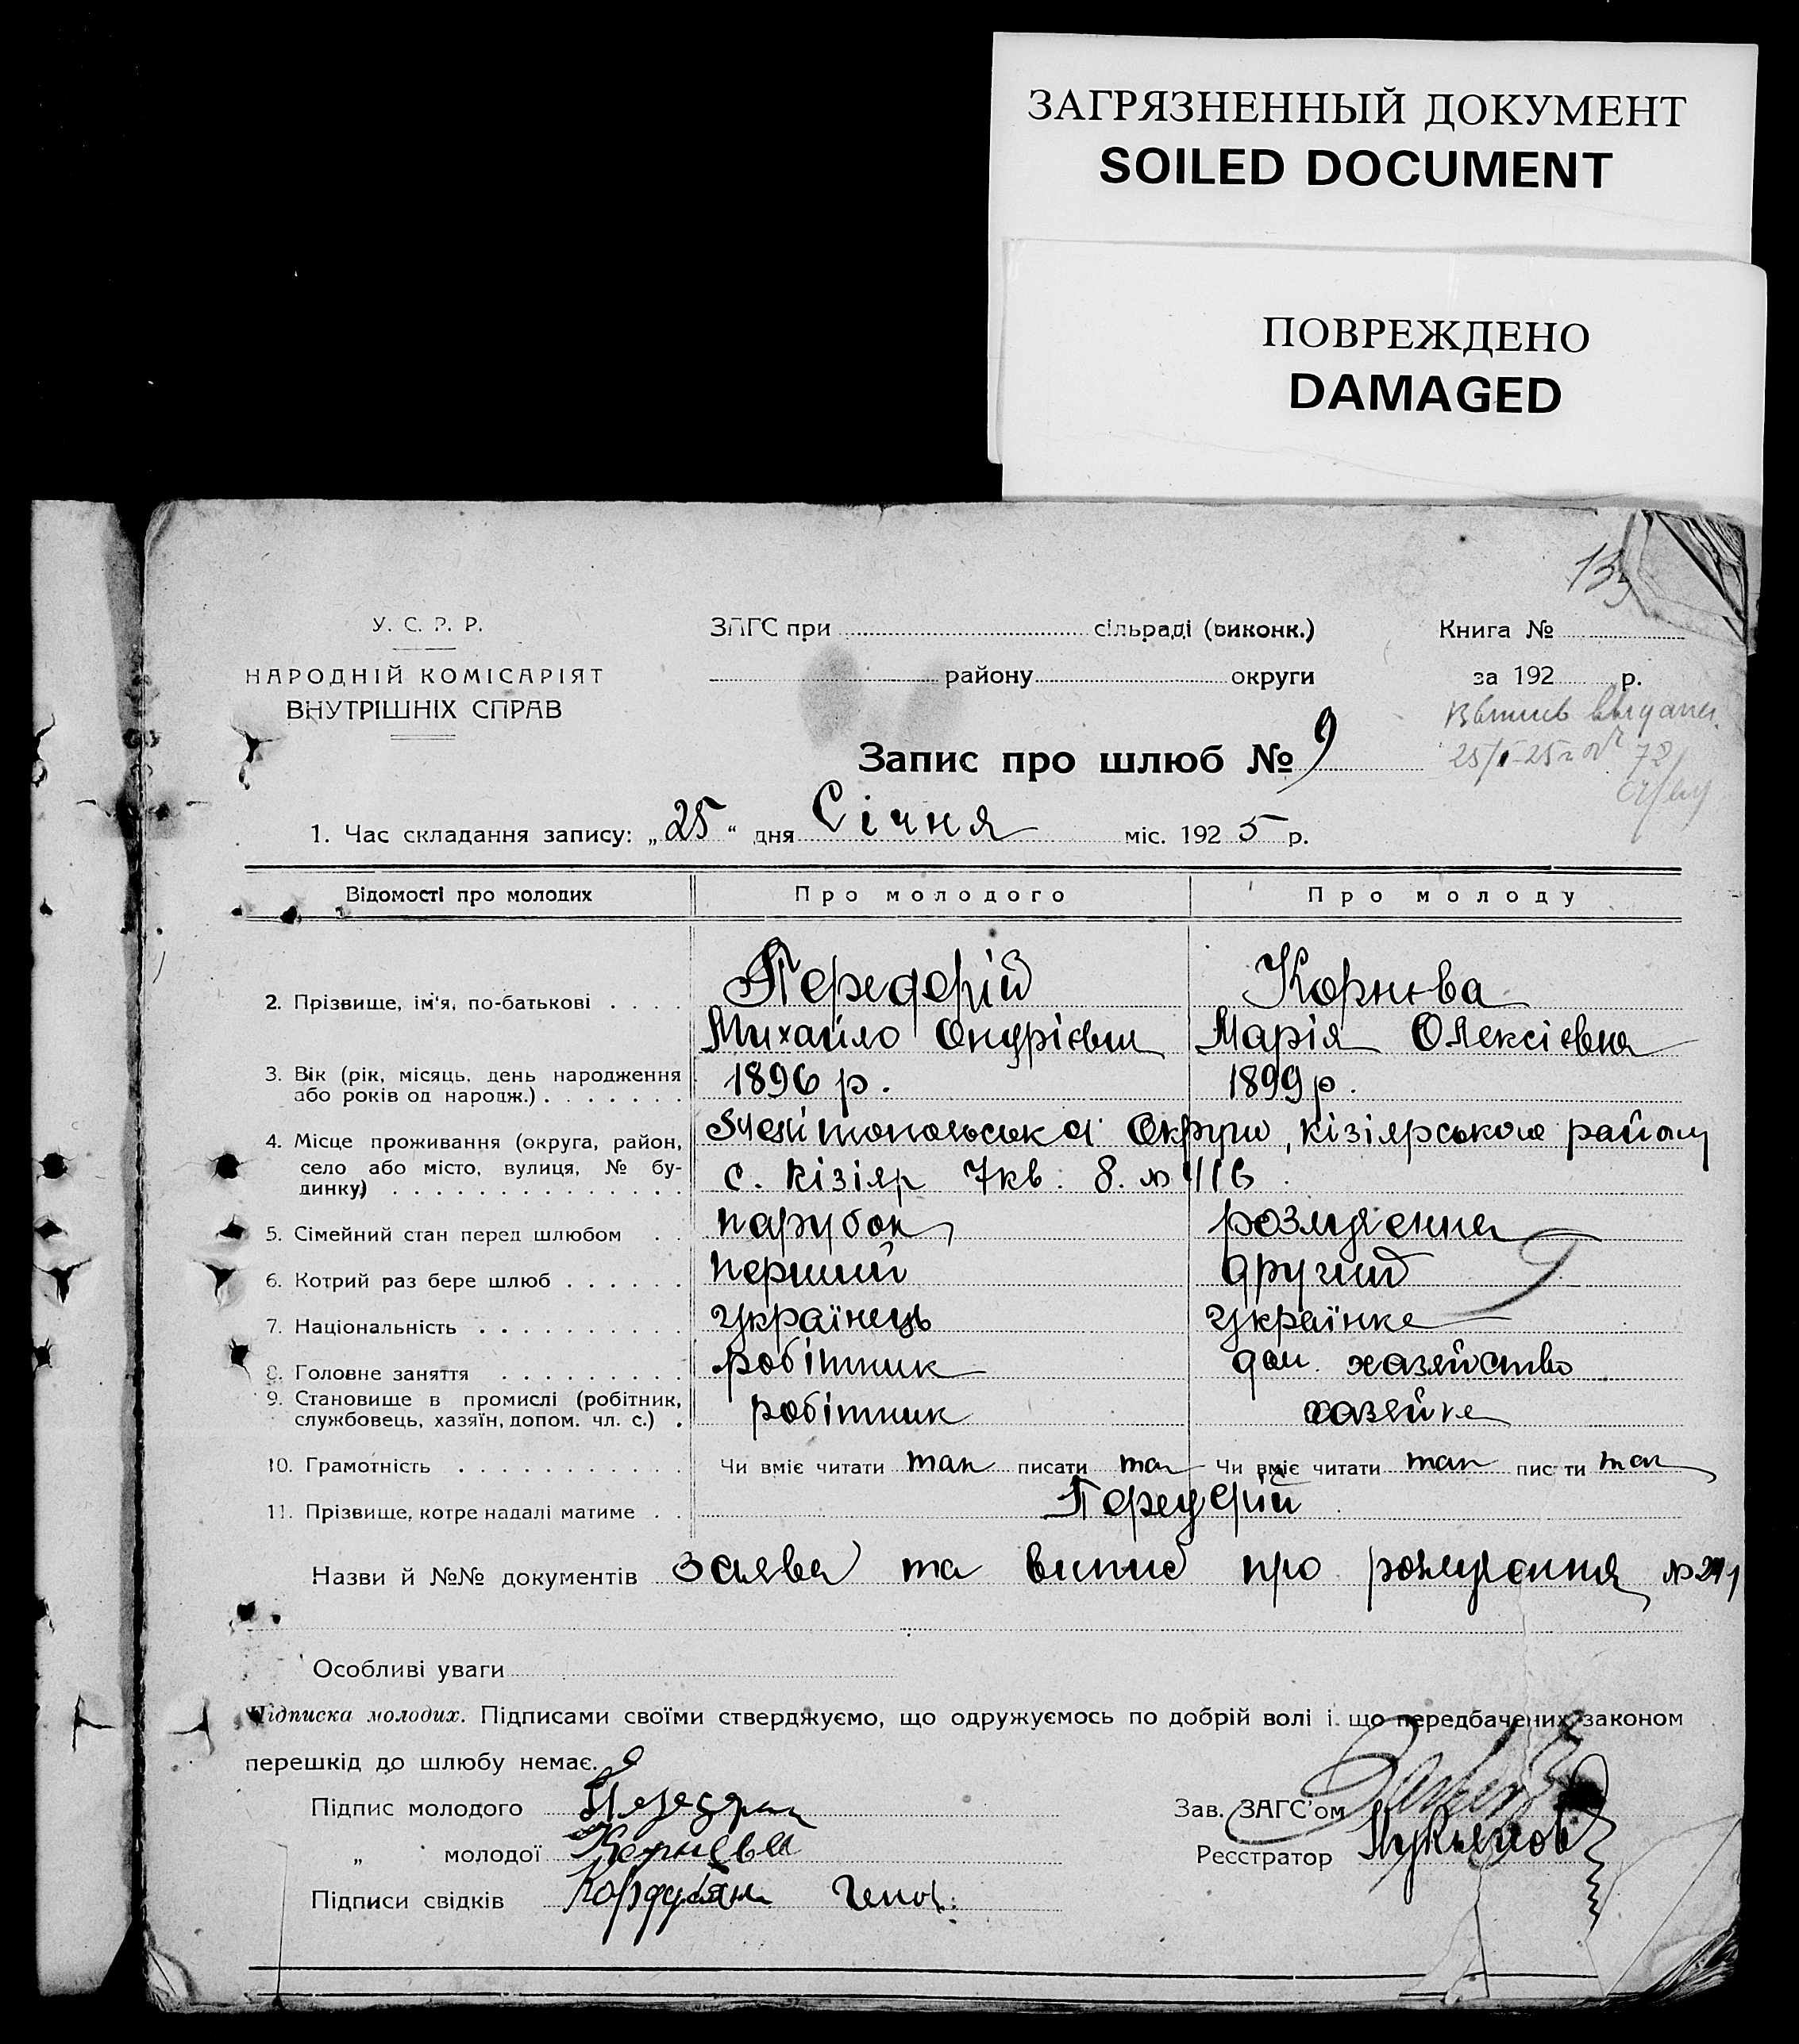 ЗАГРЯЗНЕННЫЙ ДОКУМЕНТ
SOILED DOCUMENT
ПОВРЕЖДЕНО
DAMAGED
У. С. Р. Р.
НАРОДНІЙ КОМІСАРІЯТ
ВНУТРІШНІХ СПРАВ
ЗАГС при сільраді (виконк.)
району округи
Книга №
за 192 р.
Запис про шлюб № 9
1. Час складання запису: „25“ дня Січня міс. 1925 р.
Відомості про молодих Про молодого Про молоду
Передерій Корнєва
2. Прізвище, ім'я, по-батькові
Михайло Андрієвич Марія Олексієвна
3. Вік (рік, місяць, день народження 1896 р. 1899 р.
або років од народж.)
Мелітопольська Округи, кізіярського району
4. Місце проживання (округа, район,
село або місто, вулиця, № бу- с. Кізіяр 7 кв. 8. №
динку)
5. Сімейний стан перед шлюбом парубок розлучена
6. Котрий раз бере шлюб перший другий
7. Національність українець українка
8. Головне заняття робітник дом. хазяйство
9. Становище в промислі (робітник, робітник хазяйка
службовець, хазяїн, допом. чл. с.)
10. Грамотність Чи вміє читати так писати так Чи вміє читати так писати так
11. Прізвище, котре надалі матиме Передерій
Назви й №№ документів заява та випис про розлучення №
Особливі уваги
Підписка молодих. Підписами своїми стверджуємо, що одружуємось по добрій волі і що передбачених законом
перешкід до шлюбу немає.
Підпис молодого
Зав. ЗАГС'ом
„ молодої Корнева
Реєстратор Лукьянов
Підписи свідків